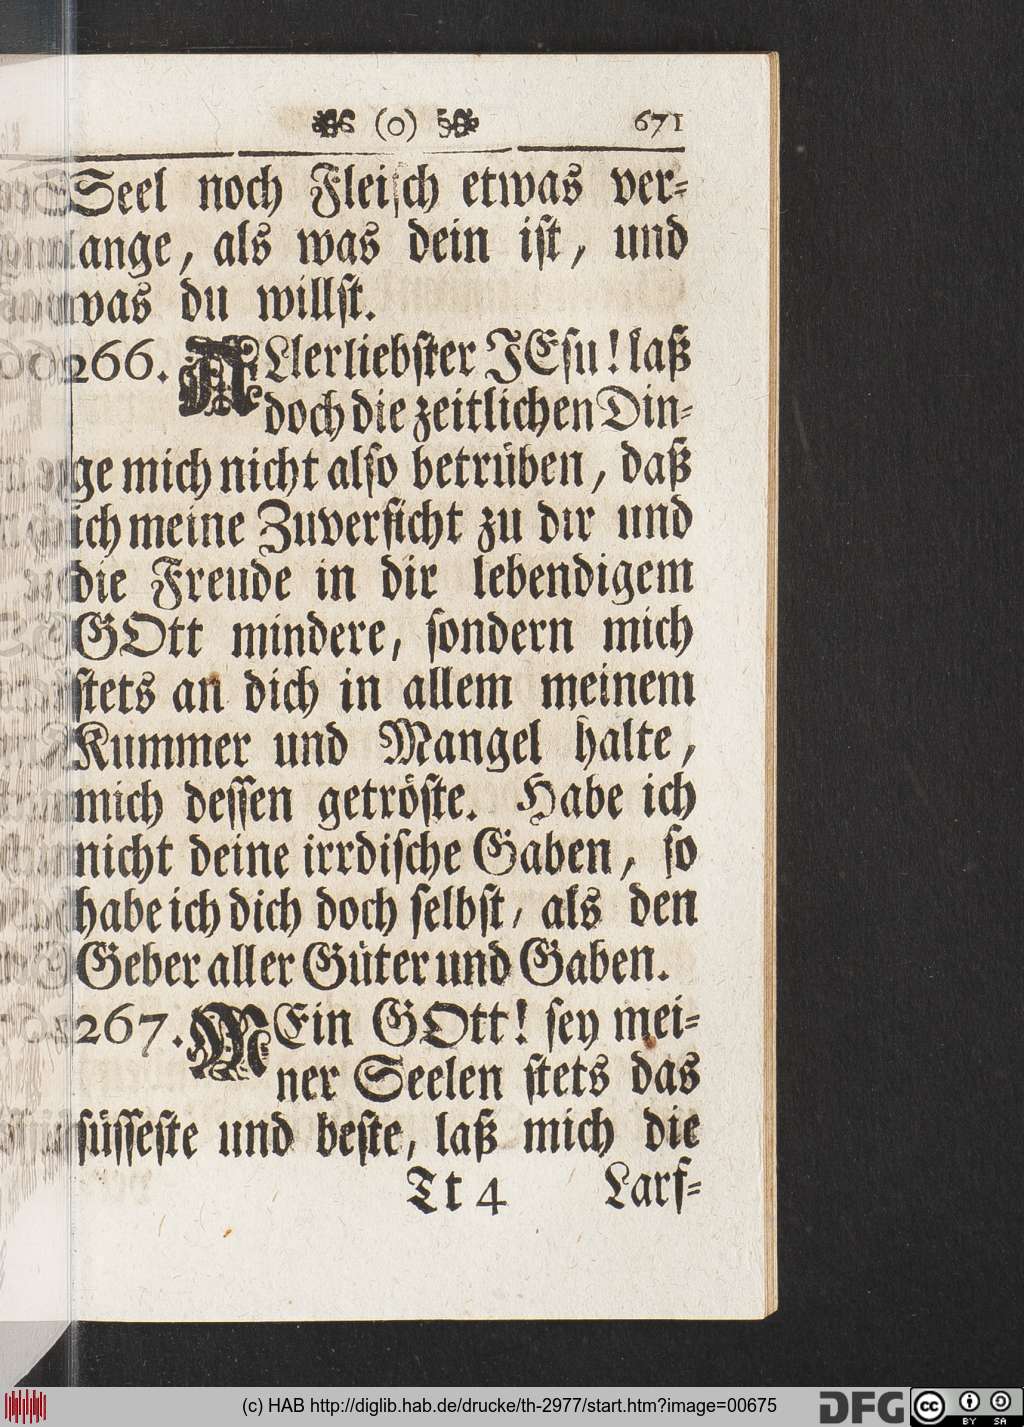 (o) 671
Seel noch Fleiſch etwas ver⸗
lange, als was dein iſt, und
was du willſt.
266. ALlerliebſter JEſu! laß
doch die zeitlichen Din⸗
ge mich nicht alſo betrüben, daß
ich meine Zuverſicht zu dir und
die Freude in dir lebendigem
GOtt mindere, ſondern mich
ſtets an dich in allem meinem
Kummer und Mangel halte,
mich deſſen getröſte. Habe ich
nicht deine irrdiſche Gaben, ſo
habe ich dich doch ſelbſt, als den
Geber aller Güter und Gaben.
267. MEin GOtt! ſey mei⸗
ner Seelen ſtets das
ſüſſeſte und beſte, laß mich die
Tt 4 Larf⸗
(c) HAB http://diglib.hab.de/drucke/th-2977/start.htm?image=00675
DFG
cc BY SA